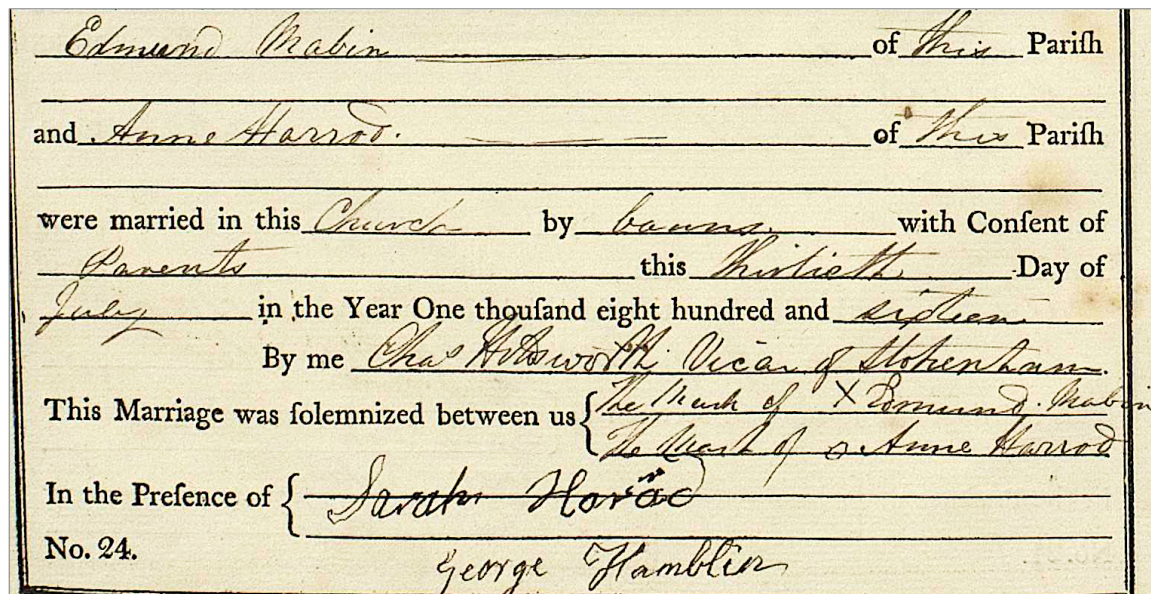 Edmund Mabin of this Pariſh
and Anne Harrod. of this Pariſh
were married in this Church by banns. with Conſent of
Parents this Thirtieth Day of
July in the Year One thouſand eight hundred and sixteen
By me Chas Holdsworth Vicar of Stokenham.
This Marriage was ſolemnized between us { The Mark of X Edmund. Mabin
The Mark of o Anne Harrod
In the Preſence of { Sarah Harod
No. 24.
George Hamblin